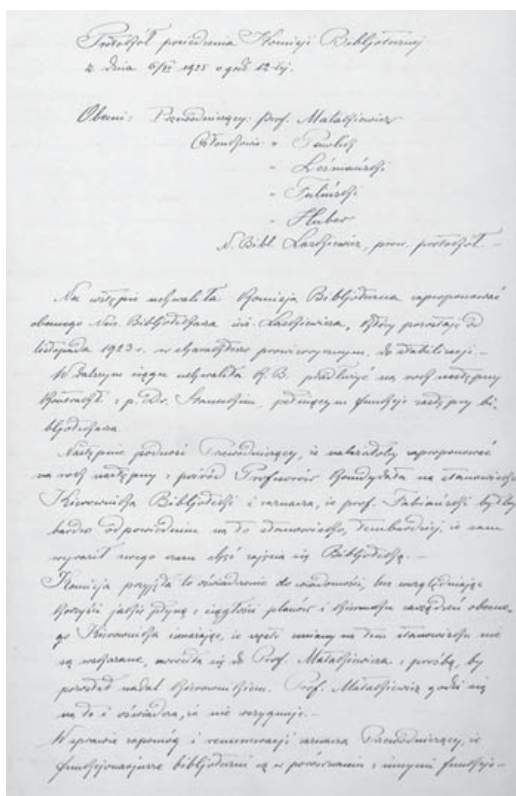 Protokół posiedzenia Komisji Bibljotecznej
z dnia 6/XI 1925 o godz 12-tej.
Obecni: Przewodniczący: prof. Matakiewicz
Członkowie: " Pawlik
" Łoźiński
" Fuliński
" Huber
N. Bibl. Łaszkiewicz, prow. protokół. –
Na wstępie uchwaliła Komisja Bibljoteczna zaproponować
obecnego Nacz. Bibljotekarza inż. Łaszkiewicza, który pozostaje od
listopada 1923 r. w charakterze prowizorycznym, do stabilizacji. –
W dalszym ciągu uchwaliła K. B. przedłużyć na rok następny
kontrakt z p. Dr. pełniącym funkcje zastępcy bi-
bljotekarza.
Następnie podnosi Przewodniczący, iż należałoby zaproponować
na rok następny z pośród Profesorów kandydata na stanowisko
Kierownika Bibljoteki i zaznacza, iż prof. Fabiański byłby
bardzo odpowiednim na to stanowisko, tembardziej, iż sam
wyraził swego czasu chęć zajęcia się Bibljoteką. –
Komisja przyjęła to oświadczenie do wiadomości, lecz uwzględniając
korzyści jakie płyną z ciągłości planów i kierunku zarządzeń obecne-
go Kierownika i uważając, że częste zmiany na tem stanowisku nie
są wskazane, zwróciła się do Prof. Matakiewicza z prośbą, by
pozostał nadal kierownikiem. Prof. Matakiewicz godzi się
na to i oświadcza, iż nie rezygnuje. –
W sprawie zapomóg i remuneracji zaznacza Przewodniczący, iż
funkcjonarjusze bibljoteczni są w porównaniu z innymi funkcjo-